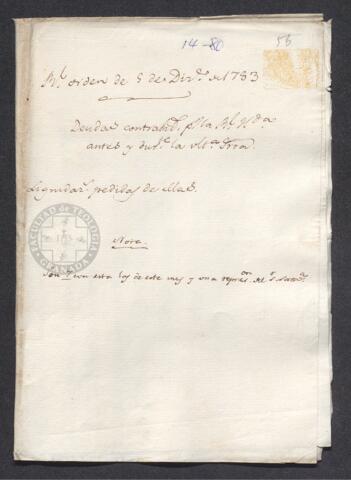 14-80
55
Rl. orden de 5 de Dizre. de 1783
Deudas contrahids. pr la Rl. Hda.
antes y durte. la ulta. Grra.
Liquidazs. pedidas de ellas.
Nota.
con esta los de este mes y una represon. del
FACULTAD DE TEOLOGIA
GRANADA